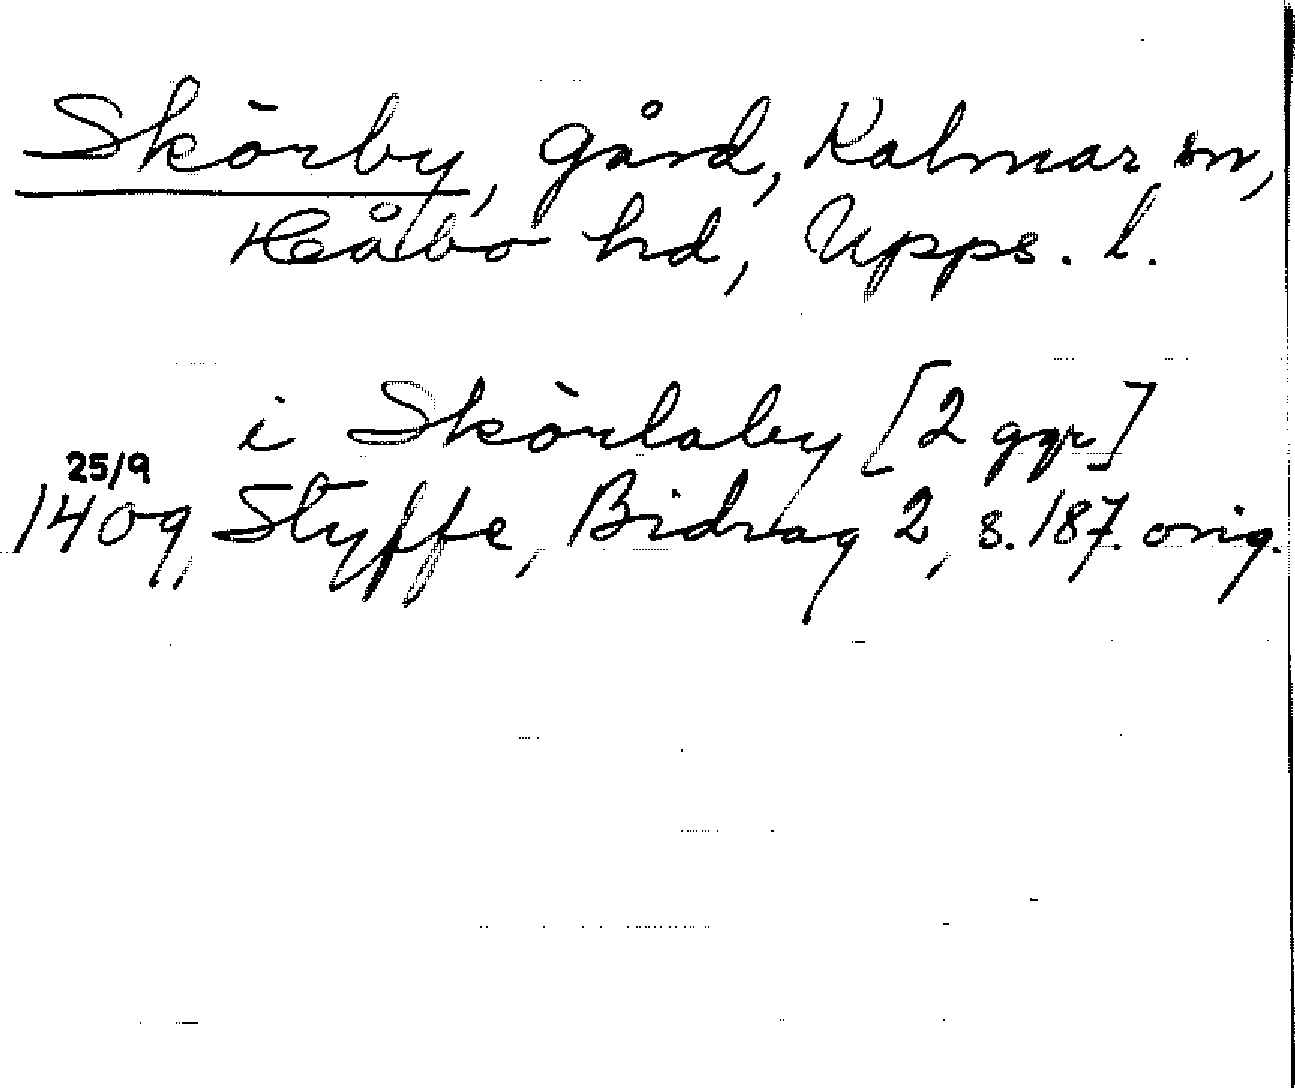 Skörby, gård, Kalmar sn,
Håbo hd, Upps. l.
i Skörlaby [2 ggr]
25/9
1409, Styffe, Bidrag 2, s. 187. orig.